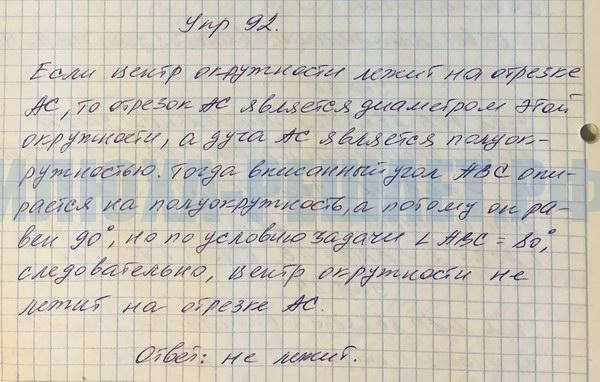 Упр 92.
Если центр окружности лежит на отрезке
АС, то отрезок АС является диаметром этой
окружности, а дуга АС является полуок-
ружностью. Тогда вписанный угол АВС опи-
рается на полуокружность, а потому он ра-
вен 90°, но по условию задачи ∠ АВС = 80°,
следовательно, центр окружности не
лежит на отрезке АС.
Ответ: не лежит.